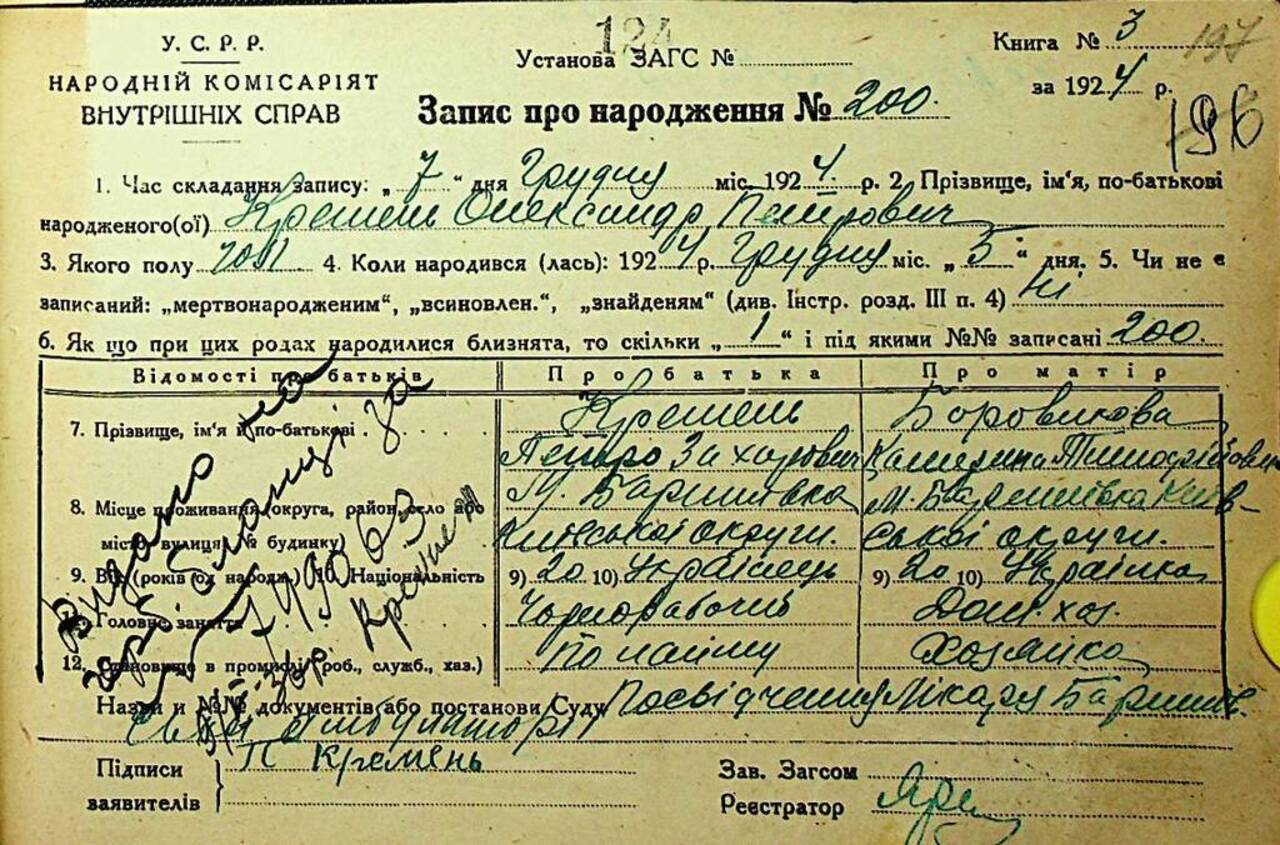 У. С. Р. Р.
НАРОДНІЙ КОМІСАРІЯТ
ВНУТРІШНІХ СПРАВ
124
Установа ЗАГС №
Книга № 3
197
за 1924 р.
196
Запис про народження № 200.
1. Час складання запису: „ 7 “ дня Грудня міс. 1924. р. 2. Прізвище, ім'я, по-батькові
народженого(ої) Кремень Олександр Петрович
3. Якого полу чол. 4. Коли народився (лась): 1924 р. Грудня міс. „ 5 “ дня. 5. Чи не є
записаний: „мертвонародженим“, „всиновлен.“, „знайденям“ (див. Інстр. розд. III п. 4) Ні
6. Як що при цих родах народилися близнята, то скільки „ 1 “ і під якими №№ записані 200.
Відомості про батьків Про батька Про матір
7. Прізвище, ім'я й по-батькові Кремень Боровикова
Петро Захарович Катерина Тимофіївна
8. Місце проживання (округа, район, село або М. Баришівка М. Баришівка Київ-
місто, вулиця, № будинку) Київської округи. ської округи.
9. Вік (років од народж.) 10. Національність 9) 20 10) Українець 9) 20 10) Українка
Головне заняття Чорнорабочий Дом. хоз.
12. Становище в промислі (роб., служб., хаз.) По найму Хозяйка
Видано на
бланці за
Кремень
Назви и №№ документів або постанови Суду Посвідчення Лікаря Баришів-
ської амбулаторії
Підписи
заявителів
П Кремень
Зав. Загсом
Реєстратор